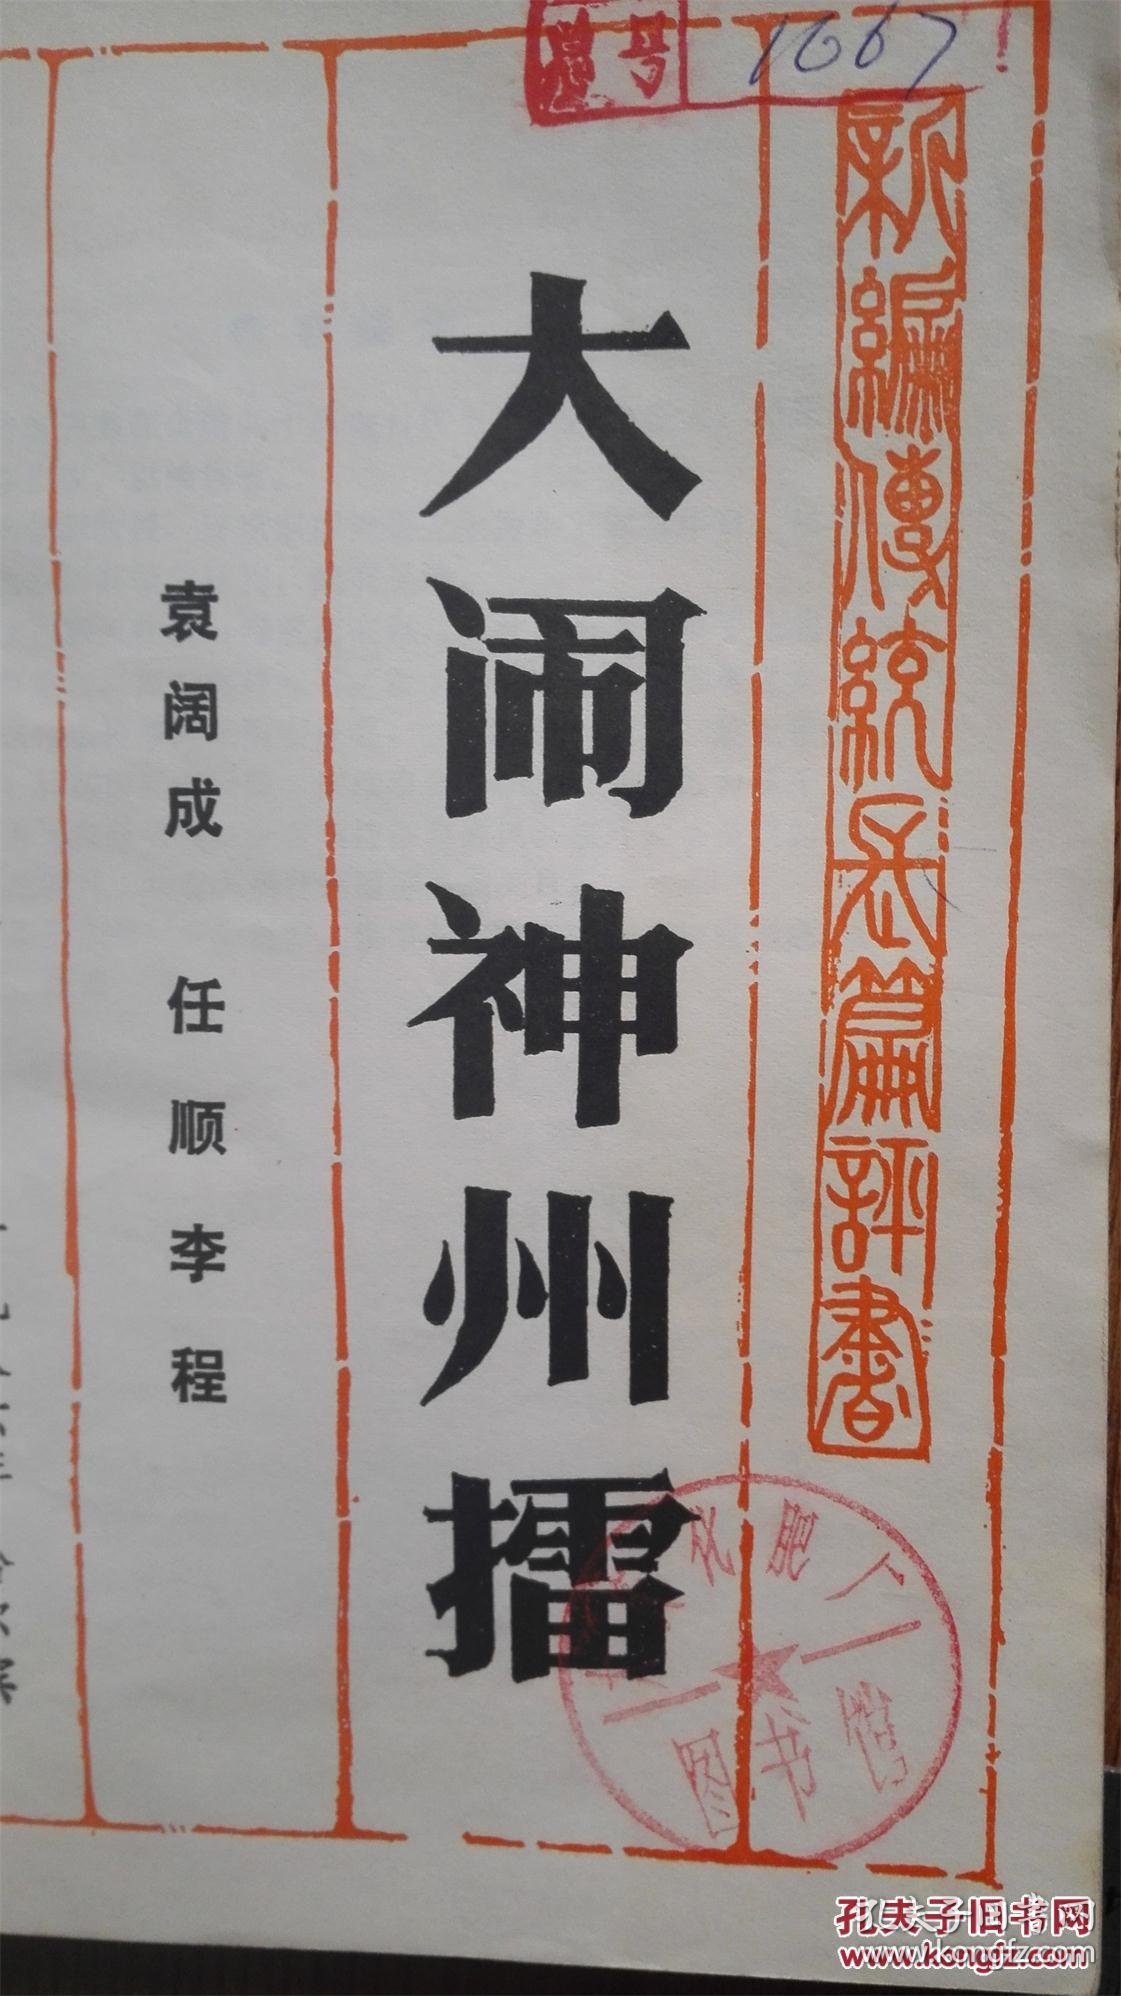 总号 1667
新編傳統長篇評書
大闹神州擂
袁阔成 任顺 李程
化肥厂
图书馆
孔夫子旧书网
www.kongfz.com